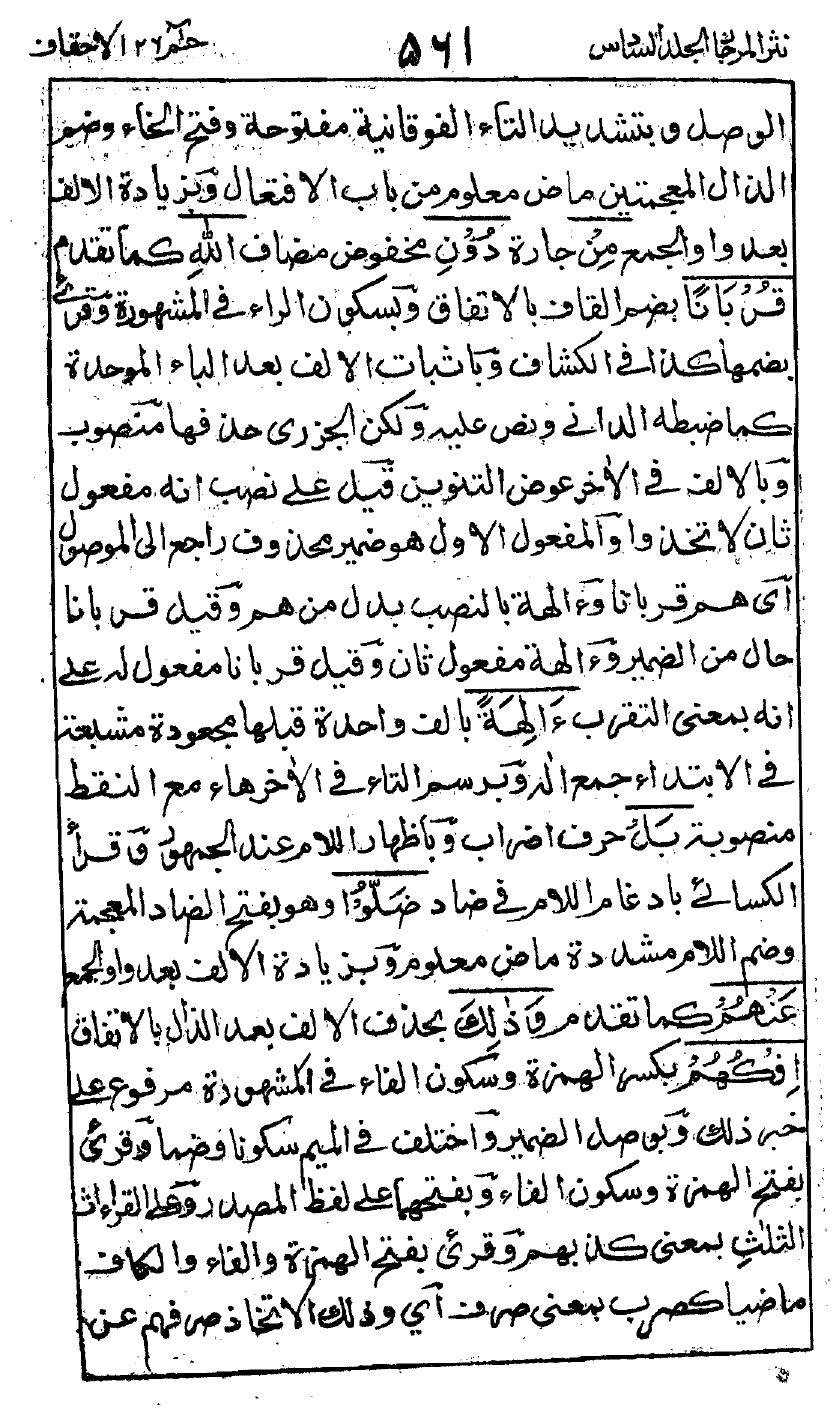 نثر المرجان الجلد السادس
٥٦١
حم ٢٦ الاحقاف
الوصل وبتشديد التاء الفوقانية مفتوحة وفتح الخاء وضم
الذال المعجمتين ماض معلوم من باب الافتعال وبزيادة الالف
بعد واو الجمع مِنْ جارة دُوْنِ مخفوض مضاف اللهِ كما تقدم
قُرْبَانًا بضم القاف بالاتفاق وبسكون الراء في المشهورة وقرئ
بضمها كذا في الكشاف وباثبات الالف بعد الباء الموحدة
كما ضبطه الداني ونص عليه ولكن الجزري حذفها منصوب
وبالالف في الاٰخر عوض التنوين قيل على نصب انه مفعول
ثان لاتخذوا والمفعول الاول هو ضمير محذوف راجع الى الموصول
اي هم قربانا وءالهة بالنصب بدل من هم وقيل قربانا
حال من الضمير وءالهة مفعول ثان وقيل قربانا مفعول له على
انه بمعنى التقرب ءَالِهَةً بالف واحدة قبلها مجعودة مشبعة
في الابتداء جمع اله وبرسم التاء في الاٰخر هاء مع النقط
منصوبة بَلْ حرف اضراب وباظهار اللام عند الجمهور وقرأ
الكسائي بادغام اللام في ضاد ضَلُّوْا وهو بفتح الضاد المعجمة
وضم اللام مشددة ماض معلوم وبزيادة الالف بعد واو الجمع
عَنْهُمْ كما تقدم وَذٰلِكَ بحذف الالف بعد الذال بالاتفاق
اِفْكُهُمْ بكسر الهمزة وسكون الفاء في المشهورة مرفوع على
خبر ذلك وبوصل الضمير واختلف في الميم سكونا وضما وقرئ
بفتح الهمزة وسكون الفاء وبفتحهما على لفظ المصدر وعلى القراءات
الثلٰثِ بمعنى كذبهم وقرئ بفتح الهمزة والفاء والكاف
ماضيا كصرب بمعنى صرف اي وذلك الاتخاذ صرفهم عن